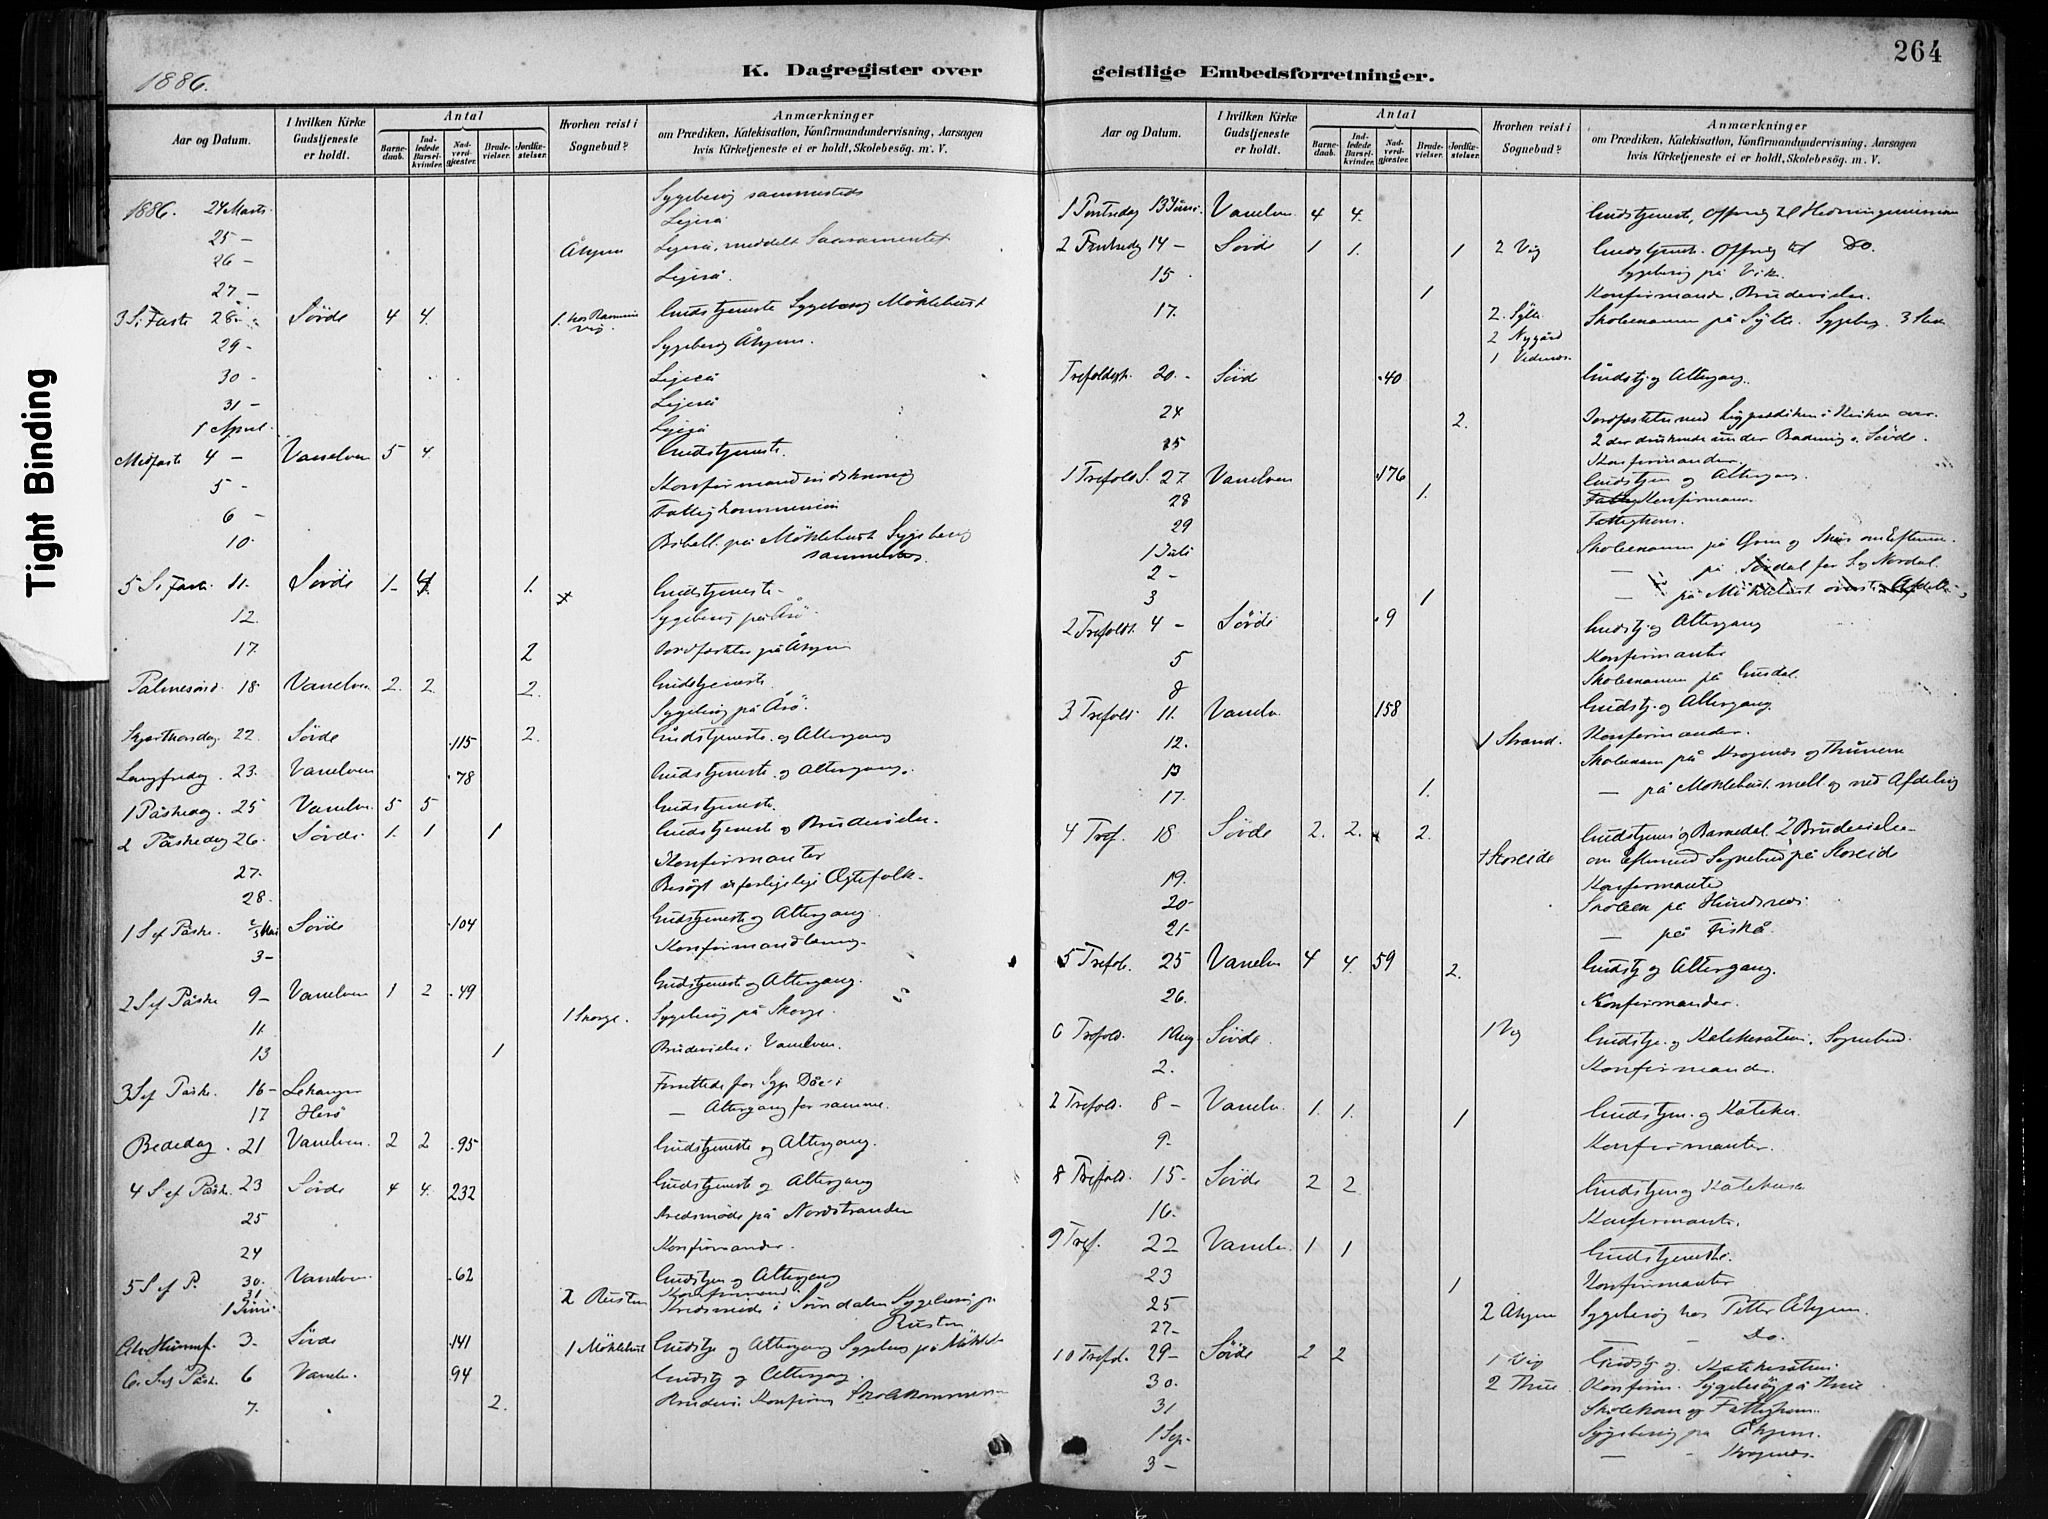 264
1886.
K. Dagregister over geistlige Embedsforretninger.
Tight Binding
Aar og Datum.
I hvilken Kirke Gudstjeneste er holdt.
Antal
Barnedaab.
Indledede Barselkvinder.
Nadverdgjæster.
Brudevielser.
Jordfæstelser.
Hvorhen reist i Sognebud?
Anmærkninger
om Prædiken, Katekisation, Konfirmandundervisning, Aarsagen
hvis Kirketjeneste ei er holdt, Skolebesög. m. V.
1886. 24 Marts Sygebesög sammesteds
25 — Ligeså
26 — Åhjem Ligeså, meddelt Sacramentet
27 — Ligeså.
3 S. i Faste 28 Sövde 4 4. 1. hos Gudstjeneste Sygebesög Möklebust
29 — Sygebesög Åhjem.
30 — Ligeså
31 — Ligeså
1 April. Ligeså
Midfaste 4 — Vanelven 5 4. Gudstjeneste.
5 — Konfirmandindskrivning
6 — Fattigkommission
10. på Möklebust Sygebesög
sammesteds
5 S. i Faste 11. Sövde 1 1. Gudstjeneste
12. Sygebesög på Årö
17. 2 Jordfæstelse på Åhjem
Palmesönd. 18 Vanelven 2. 2. 2. Gudstjeneste.
Sygebesög på Årö.
Skjærthorsdag 22. Sövde 115 2. Gudstjeneste og Altergang
Langfredag 23. Vanelven 78 Gudstjeneste og Altergang.
1 Påskedag 25 Vanelve. 5 5 Gudstjeneste.
2 Påskedag 26. Sövde 1. 1 1 Gudstjeneste og Brudevielse.
27. Konfirmanter
28. Besögt uforligelige Ægtefolk.
1 S ef Påske 2 Mai Sövde 104 Gudstjeneste og Altergang
3 — Konfirmandlæsning
2 S ef Påske 9 — Vanelven 1 2 49 Gudstjeneste og Altergang.
11. 1 Skorge. Sygebesög på Skorge.
13 1 Brudevielse i Vanelven.
3 S ef Påske. 16 — Lekanger Forrettede for Sgp.
17 Herö — Altergang for samme.
Bededag 21 Vanelven. 2 2 95 Gudstjeneste og Altergang.
4 S ef Påske. 23 Sövde 4 4. 232 Gudstjeneste og Altergang
25 Kredsmöde på Nordstranden
24 Konfirmander.
5 S ef P. 30. Vanelven. 62 Gudstjen og Altergang
31 Konfirmand
1 Juni 2 Rusten Kredsmöde i Syndalen Sygebesög på
Rusten
Chr Himmelf. 3. Sövde 141 1 Möklebust Gudstje og Altergang Sygebesög på Möklebust
6 S ef Påske 6 Vanelv. 94 Gudstj og Altergang.
7. 2. Brudevi. Konfirm Skolekommission
Aar og Datum.
I hvilken Kirke Gudstjeneste er holdt.
Antal
Barnedaab.
Indledede Barselkvinder.
Nadverdgjæster.
Brudevielser.
Jordfæstelser.
Hvorhen reist i Sognebud?
Anmærkninger
om Prædiken, Katekisation, Konfirmandundervisning, Aarsagen
hvis Kirketjeneste ei er holdt, Skolebesög. m. V.
1 Pintsedag 13 Juni. Vanelven 4 4. Gudstjeneste, Offring til Hedningemission
2 Pintsedag 14 — Sövde 1 1. 1 2 Vig Gudstjenest. Offring til Do.
15 Sygebesög på Vik.
1 Konfirmander, Brudevielse.
17. 2. Sylte Skoleexamen på Sylte. Sygebesög. 3 Sted
2 Nygård
1 Vedenæs.
Trefoldigh. 20. — Sövde 40 Gudstj og Altergang.
24 2. Jordfæstelse med Ligprædiken i Kirken over
25 2 der druknede under Badning i Sövde.
Konfirmander.
1 Trefold S. 27. Vanelven 176 Gudstjen og Altergang.
28 1. Konfirmander
29 Fattigkom.
1 Juli Skoleexamen på og om Efterm.
2 — — på Sördal for Nordal
3 1 — på Möklebust Afdeling
2 Trefoldt. 4 — Sövde 9 Gudstj og Altergang
5 Konfirmanter
8 Skoleexamen på Gusdal.
3 Trefold. 11. Vanelv. 158 Gudstj og Altergang.
12. 1 Strand. Konfirmander.
13 Skoleexam på Krogenæs og Thunem
17. 1. — på Möklebust. mell. og ned Afdeling
4 Tref. 18 Sövde 2. 2. 2. Gudstjenes og Barnedåb. 2 Brudevielse
Storeide om Efterm Sognebud på Storeide
19. Konfirmanter
20 — Skoleex på Hundsnes
21 — — på Fiskå.
5 Trefol. 25 Vanelv 4 4. 59 2. Gudstj og Altergang.
26. Konfirmander.
6 Trefold. 1 Aug Sövde. 1 Vig Gudstje. og Katekisation. Sognebud.
2. Konfirmander.
7 Trefold. 8 — Vanelv. 1. 1. 1 Gudstjen. og Kateker.
9. Konfirmanter.
8 Trefold. 15. Sövde 2 2. Gudstjen og Katekese
16. Konfirmanter.
9 Tref. 22 Vanelv. 1 1 Gudstjeneste.
23 1 Konfirmanter
25 2 Åhjem Sygebesög hos Petter Åhjem.
27 — — — Do.
10 Trefd. 29 — Sövde 2 2 1 Vig Gudstj og Katekisation.
30. 2 Thue Konfirm. Sygebesög på Thue
31 Skolekom og Fattigkom.
1 Sep. Sygebesög på Åhjem.
3 — — — Krogenæs.